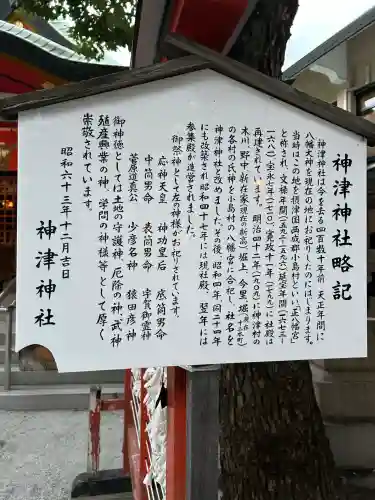 神津神社略記
神津神社は今を去る四百数十年前、天正年間に
八幡大神を現在の地にお祀りした事にはじまります。
当時はこの地を摂津国西成郡小島といい「正八幡宮」
と称され、文禄年間(一五九二~一五九六)延宝年間(一六七三~
一六八一)宝永七年(一七一〇)寛政十一年(一七九九)に社殿は
再建されています。明治四十二年(一九〇九)に神津村の
木川、野中、新在家(現在の新高)堀上、今里、堀
の各村の氏神を小島村の八幡宮に合祀し、社名を
神津神社と改めました。その後、昭和四年、同二十四年
にも改築され昭和四十七年には現社殿、翌年には
参集殿が造営されました。
御祭神として左の神様がお祀りされています。
応神天皇 神功皇后 底筒男命
中筒男命 表筒男命 宇賀御霊神
菅原道真公 少彦名神 猿田彦神
御神徳としては土地の守護神、厄除の神、武神
殖産興業の神、学問の神様等として厚く
崇敬されています。
昭和六十三年十二月吉日
神津神社